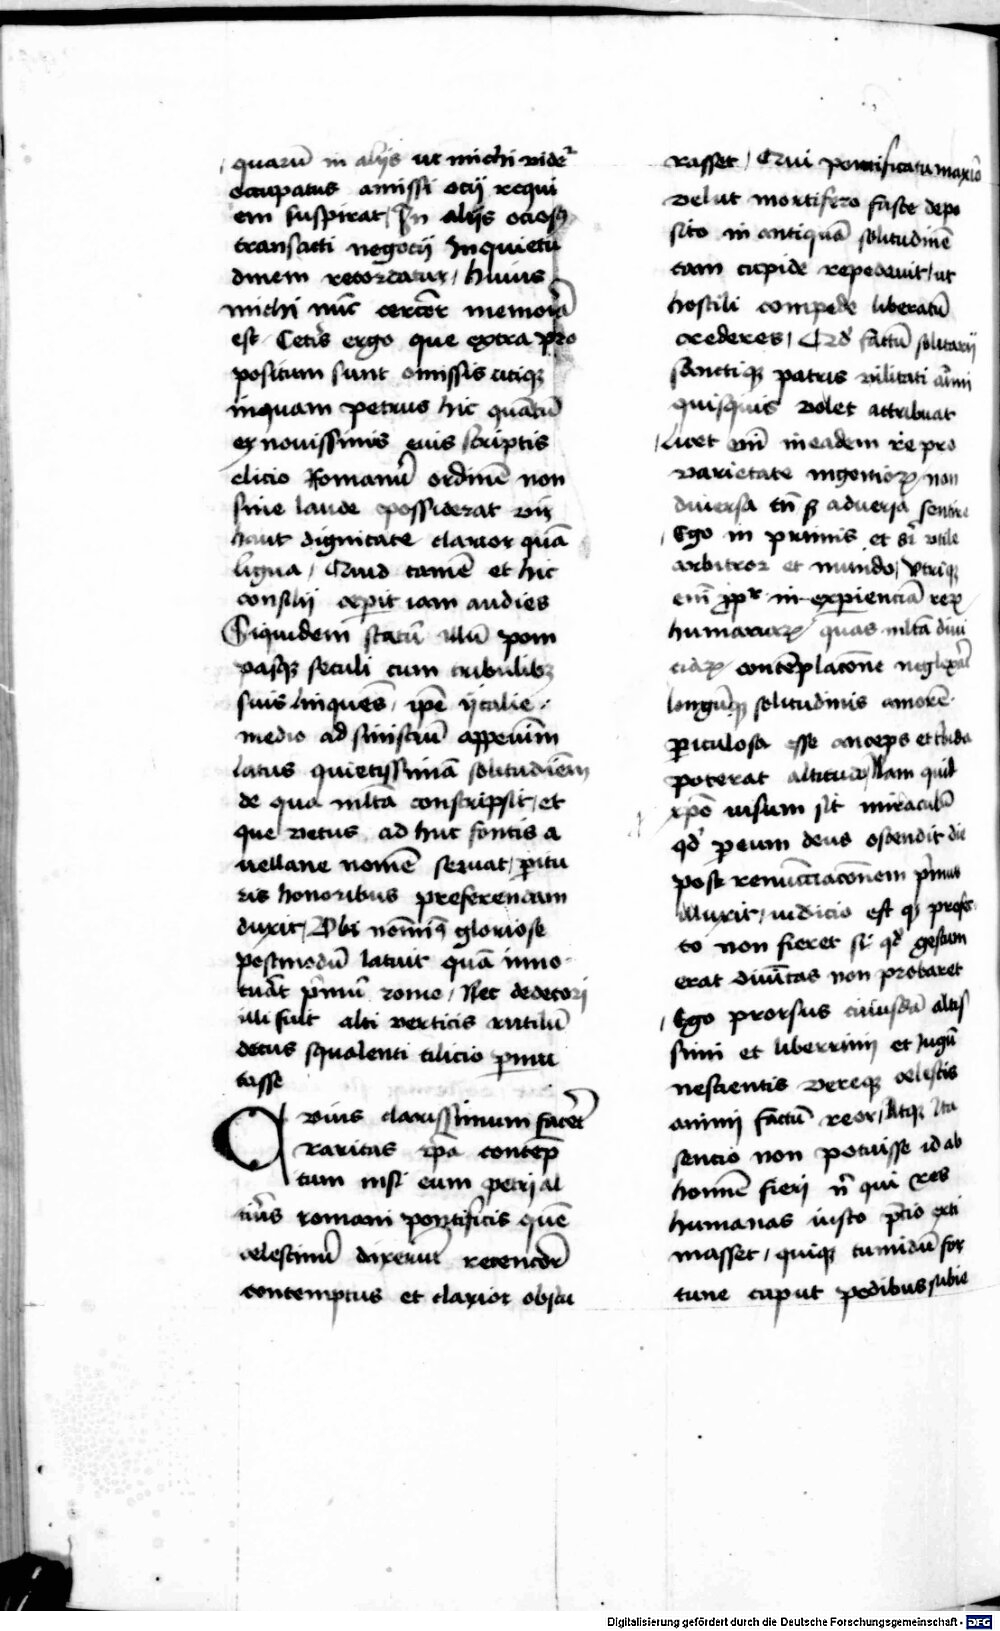 quarū in alijs ut michi videt᷑
occupatus amissi ocij requi
em suspirat / In alijs ociosꝰ
transacti negocij inquietu
dinem recordatur / huius
michi nūc certior memoria
est Cetis ergo que extra pro
positum sunt omissis utiqꝫ
inquam petrus hic quātū
ex novissimis eius scriptis
elicio Romanū ordinē non
sine laude possiderat vir
haut dignitate clarior quā
ligua / Quid tamē et hic
consilij ceperit iam audies
Siquidem statū illū pom
pasqꝫ seculi cum tribulibꝫ
suis linquēs / ipē ytalie
medio ad sinistrū appenini
latus quietissimā solitudiem
de qua mlta conscripsit / et
que vetus ad huc fontis a
vellane nomē servat / pitu
ris honoribus preferendam
duxit / Ubi nominꝭ gloriose
postmodū latuit quā inno
tuāt pimū rome / Nec dedecori
illi fuit alti verticis rutilū
decus squalenti cilicio pmu
tasse
Quius clarissimum facet
raritas rpā contēp
tum nisi eum petri al
tius romani pontificis quē
celestinū dixerūt recencior
contemptus et clarior obscu
rasset / Qui pontificatu maxīo
velut mortifero fasce depo
sito in antiquā solitudinē
tam cupide repedavit / ut
hostili compede liberatū
crederes / Qd̕ factū solitarij
sanctiqꝫ patris vilitati aīmi
quisquis volet attribuat
Licet eni in eadem re pro
varietate ingenioꝝ non
diversa tn̄ ꝫ adversa sentire
Ego in primis et sī utile
arbitror et mundo / Utriqꝫ
enī ppt᷑ inexperienciā reꝝ
humanaꝝ quas mltā divi
ciaꝝ contēplacōne neglexat
longūqꝫ solitudinis amorē
piculosa esse anceps et tbida
poterat altitudo / Nam quid
xpo visum sit miraculū
qd̕ peum deus ostendit die
post renūciacōnem pimus
illuxit / indicio est qꝫ profec
to non fieret si qd̕ gestum
erat divinitas non probaret
Ego prorsus cuiusdā altis
simi et liberrimi et Jugū
nescientis vereqꝫ celestis
animi factū reor / Atqꝫ Ita
sencio non potuisse id ab
homīe fieri n̄ qui res
humanas iusto pcio exti
masset / quiqꝫ tumidū for
tune caput pedibus subie
Digitalisierung gefördert durch die Deutsche Forschungsgemeinschaft - DFG